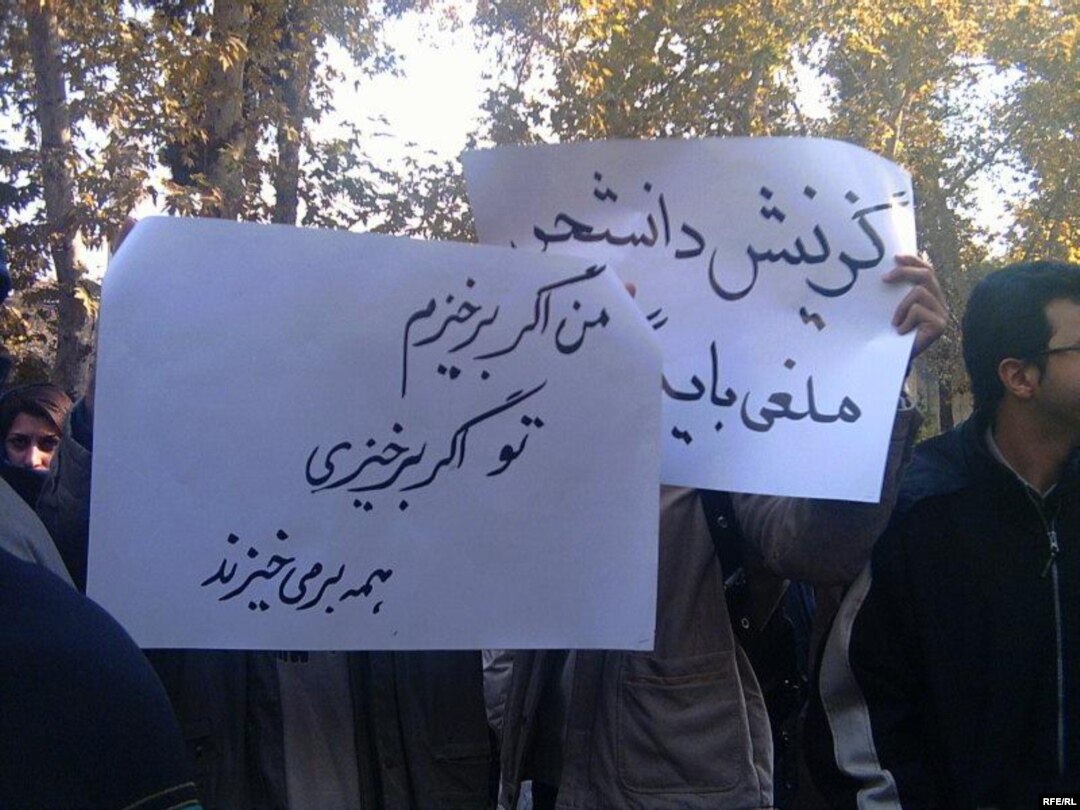 گزینش دانشجو
ملغی باید
من اگر برخیزم
تو اگر برخیزی
همه برمی خیزند
RFE/RL